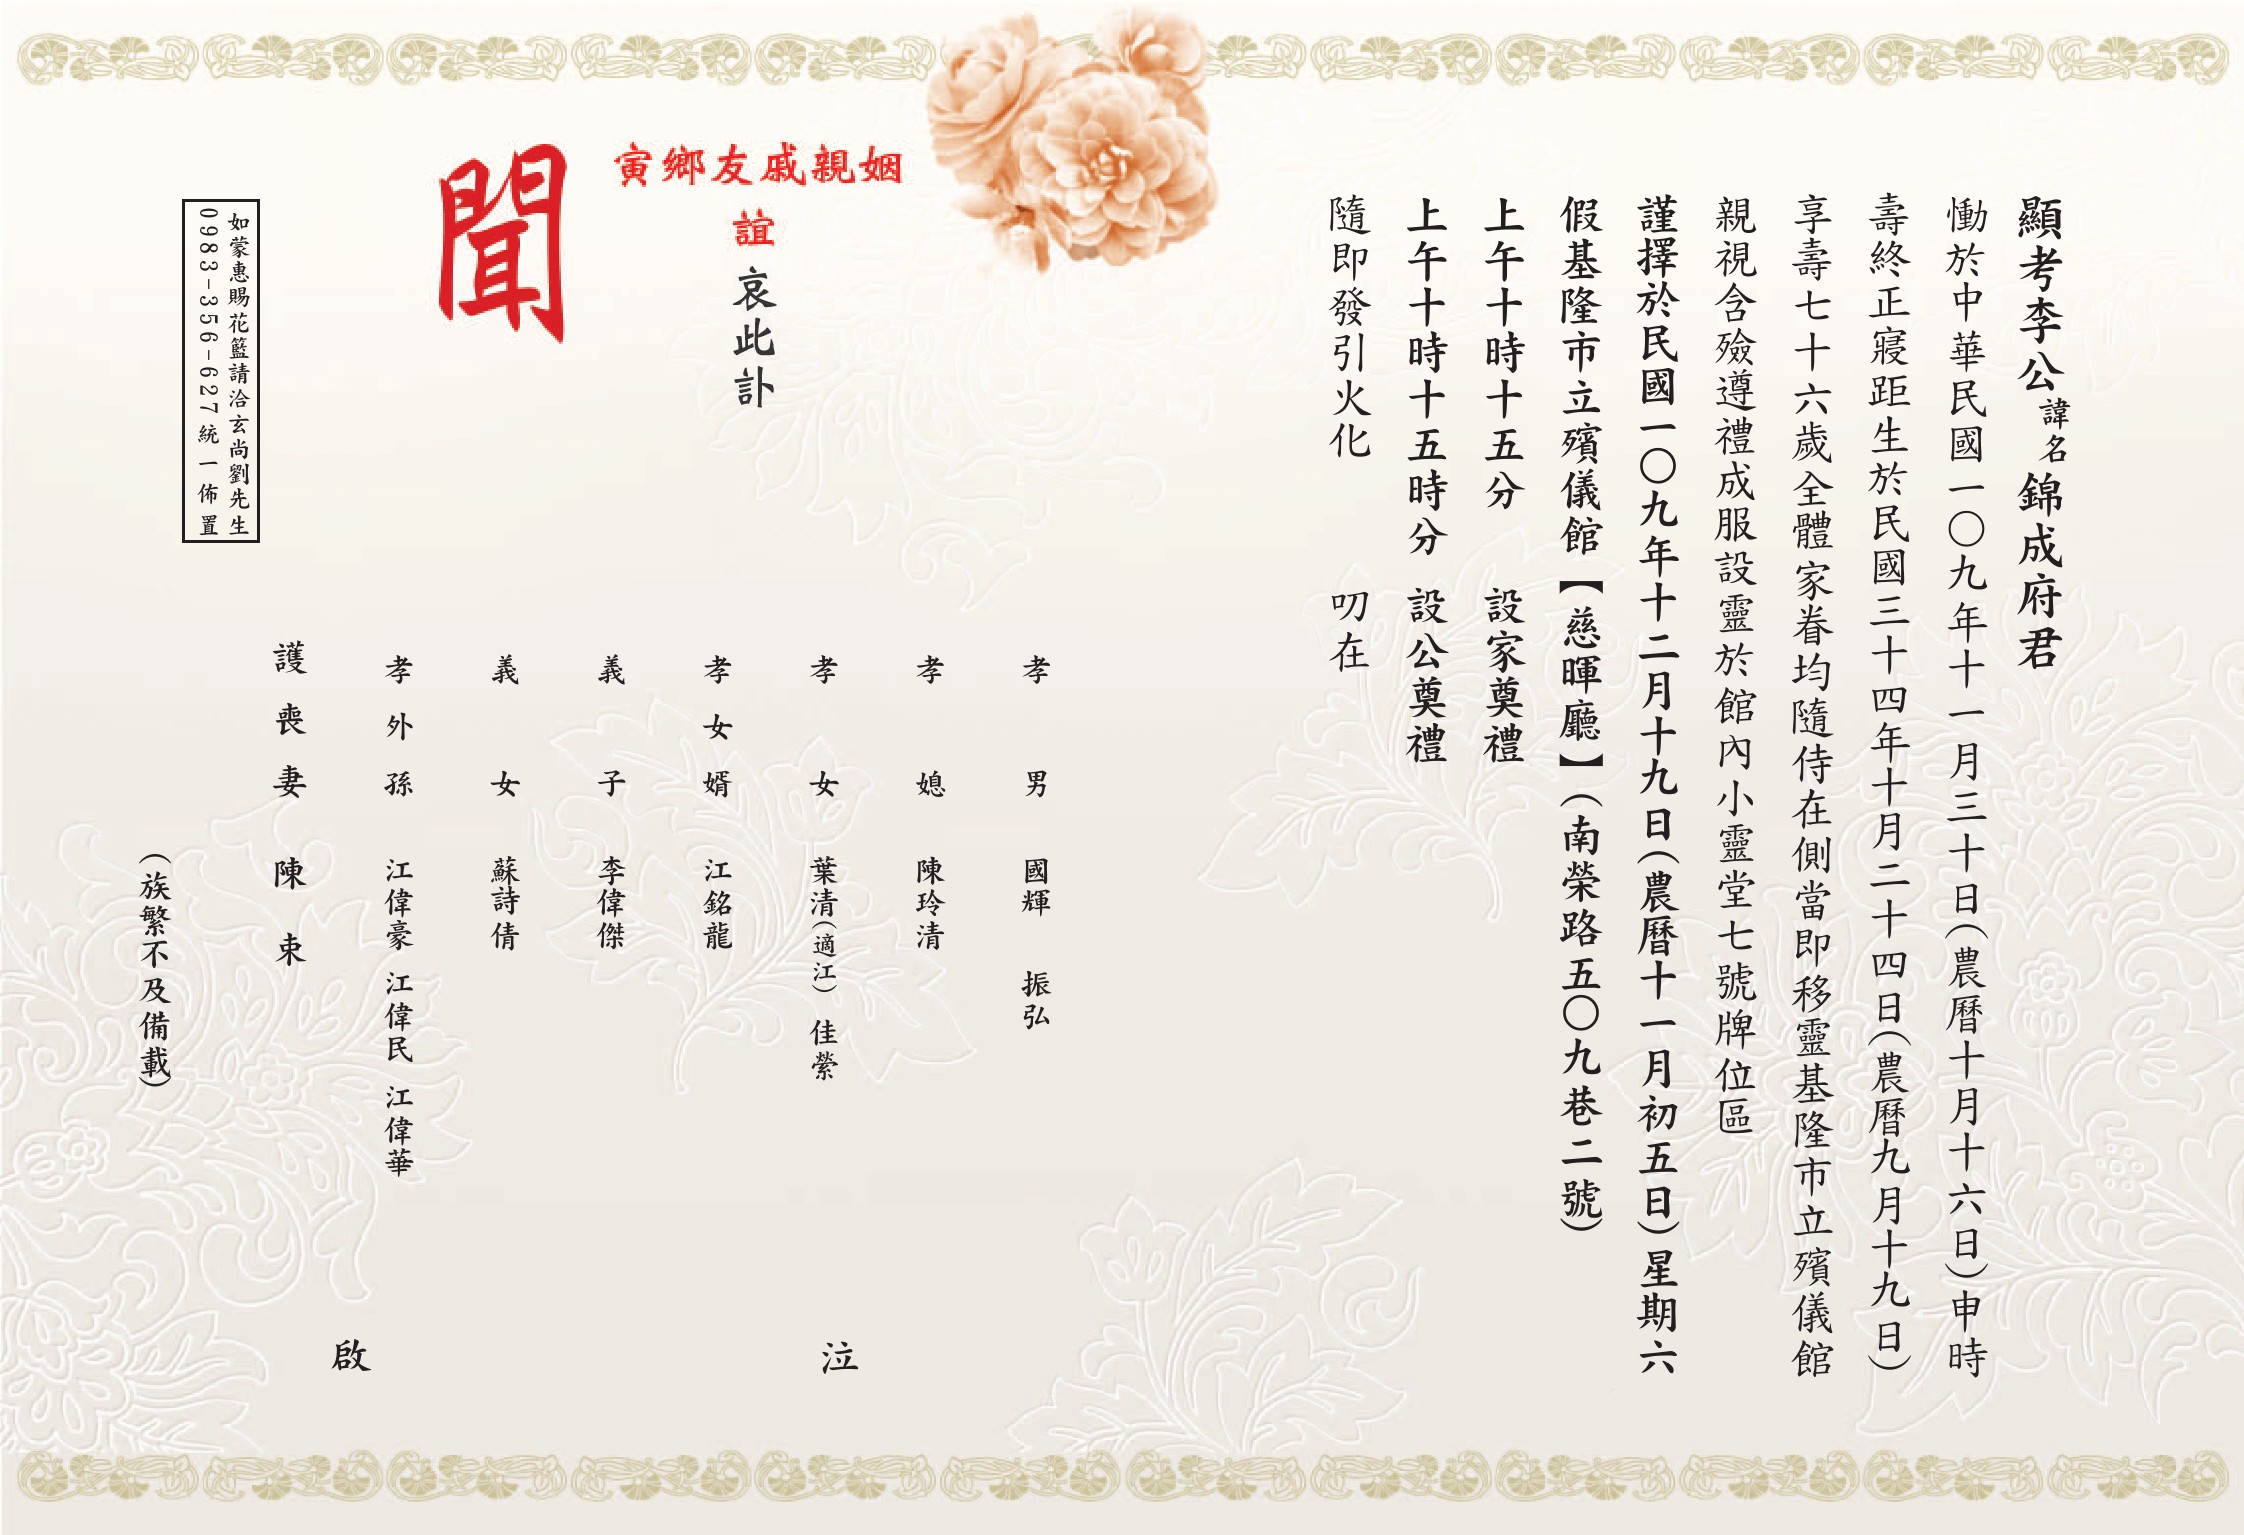 顯考李公諱名錦成府君
慟於中華民國一〇九年十一月三十日(農曆十月十六日)申時
壽終正寢距生於民國三十四年十月二十四日(農曆九月十九日)
享壽七十六歲全體家眷均隨侍在側當即移靈基隆市立殯儀館
親視含殮遵禮成服設靈於館內小靈堂七號牌位區
謹擇於民國一〇九年十二月十九日(農曆十一月初五日)星期六
假基隆市立殯儀館【慈暉廳】(南榮路五〇九巷二號)
上午十時十五分 設家奠禮
上午十時十五時分 設公奠禮
隨即發引火化 叨在
姻親戚友鄉寅
誼哀此訃
聞
孝男 國輝 振弘
孝媳 陳玲清
孝女 葉清(適江) 佳縈
孝女婿 江銘龍
義子 李偉傑
義女 蘇詩倩
孝外孫 江偉豪 江偉民 江偉華
護喪妻 陳束
泣
啟
(族繁不及備載)
如蒙惠賜花籃請洽玄尚劉先生
0983-356-627統一佈置